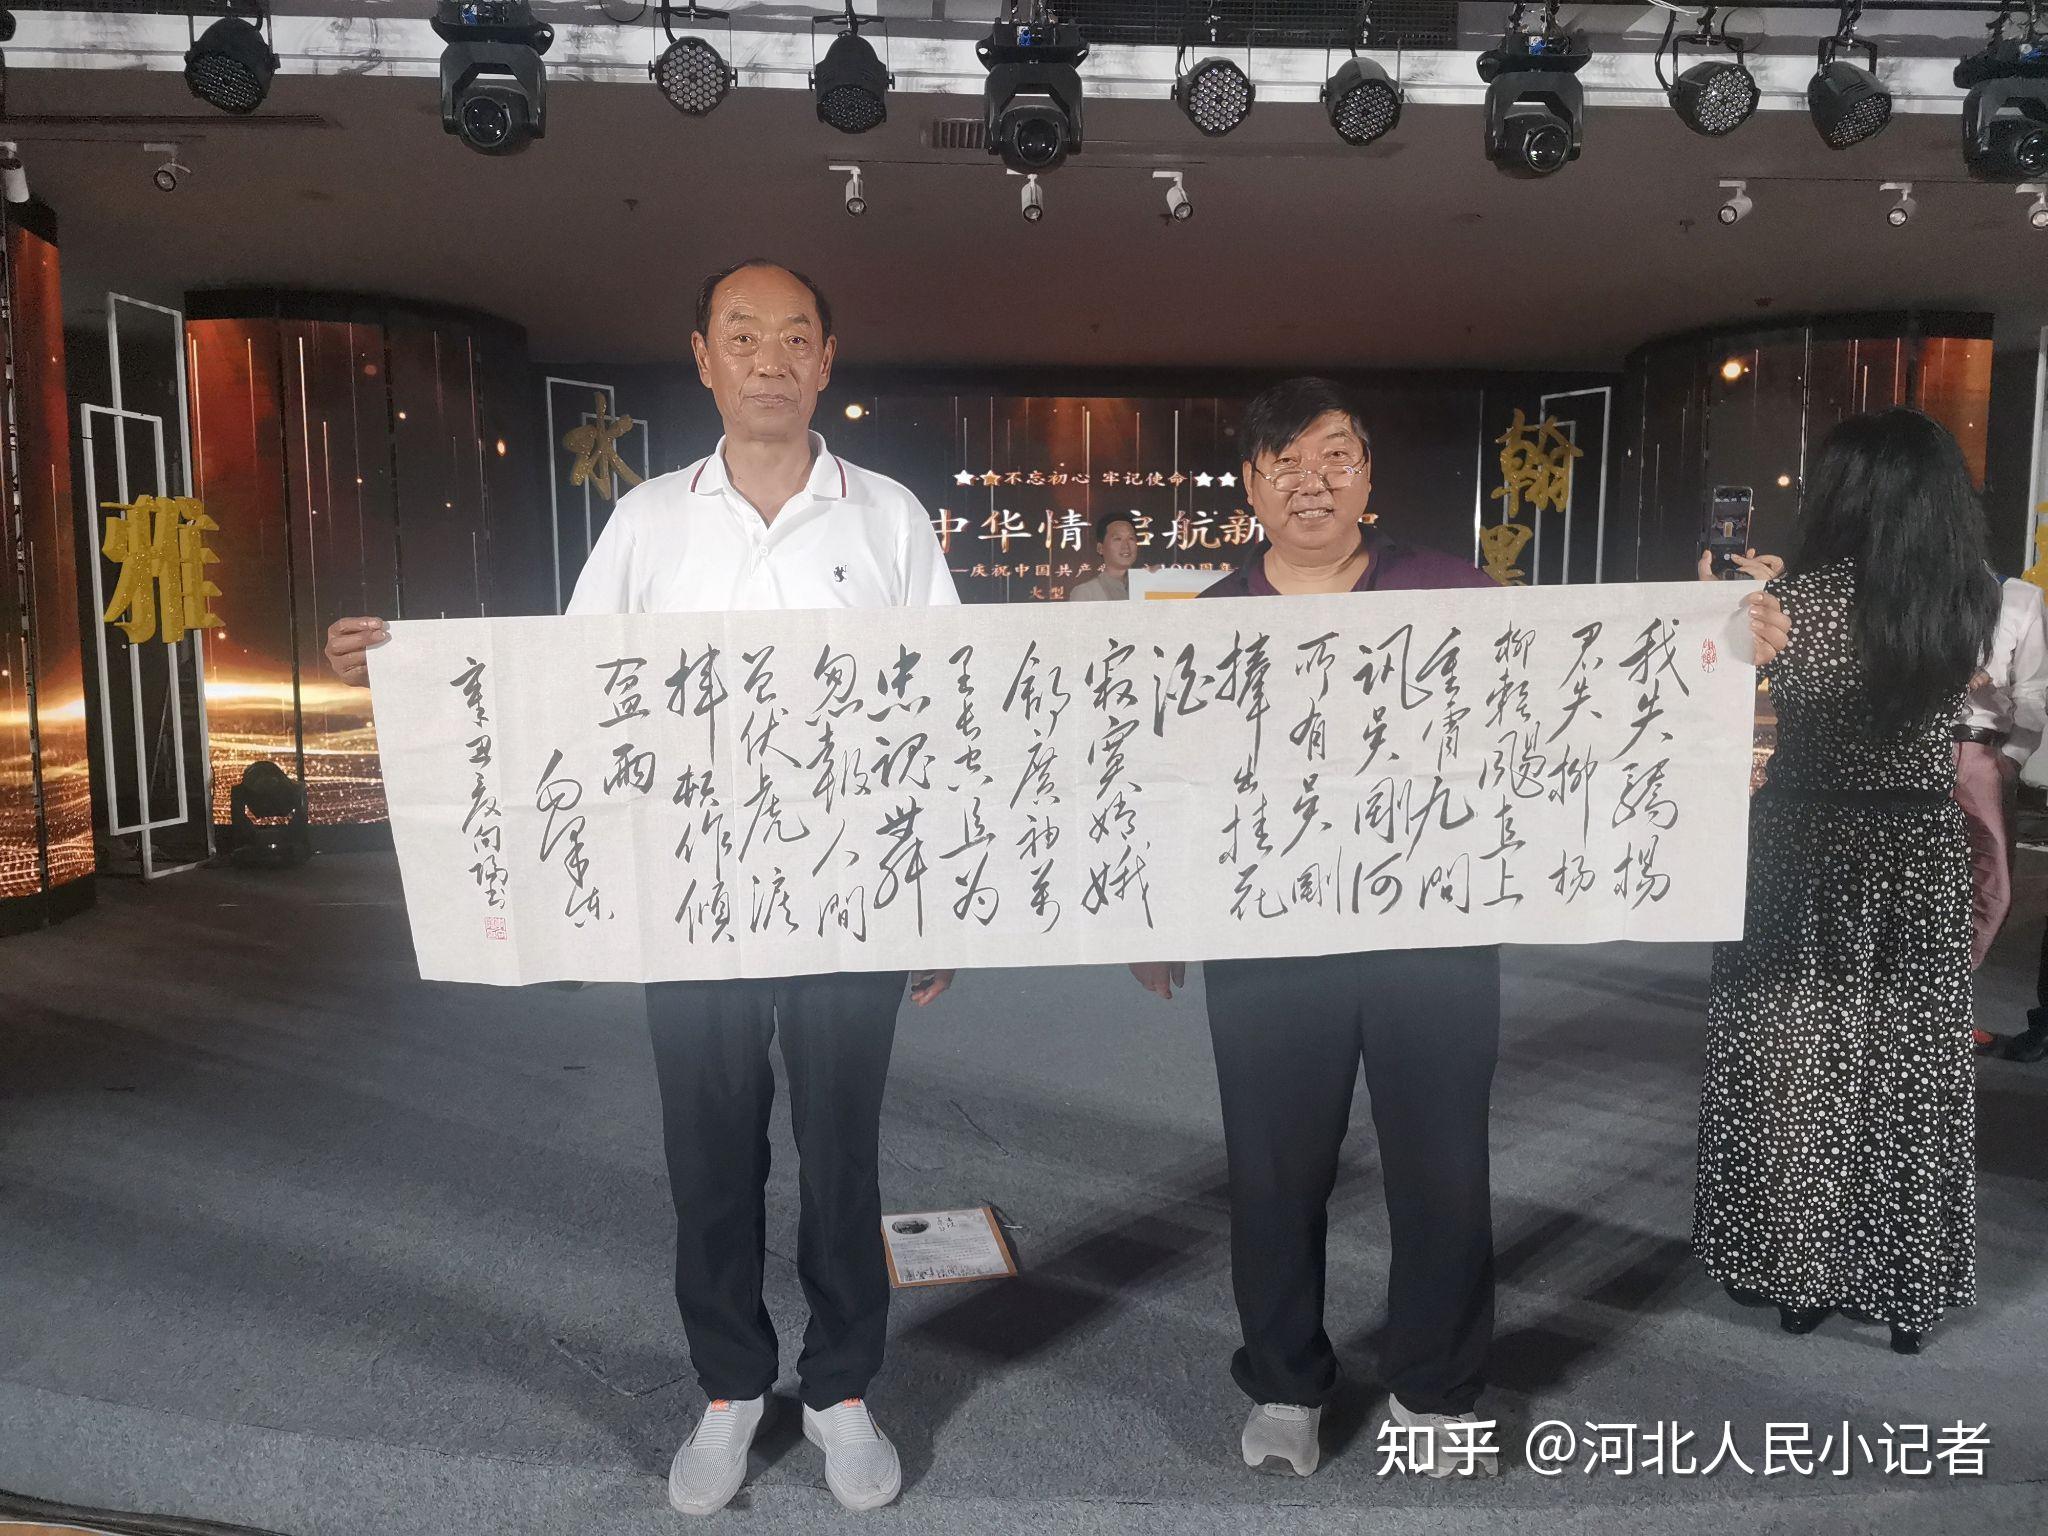 ★★不忘初心 牢记使命★★
中华情 启航新
庆祝中国共产党
100周年
大型
雅
水
翰
墨
我失驕楊
君失柳杨
柳輕颺直上
重霄九問
訊吴剛何
所有吴剛
捧出桂花
酒
寂寞嫦娥
舒廣袖万
里长空且为
忠魂舞
忽報人間
曾伏虎淚
頓作傾
盆雨
毛泽东
辛丑夏向
知乎 @河北人民小记者